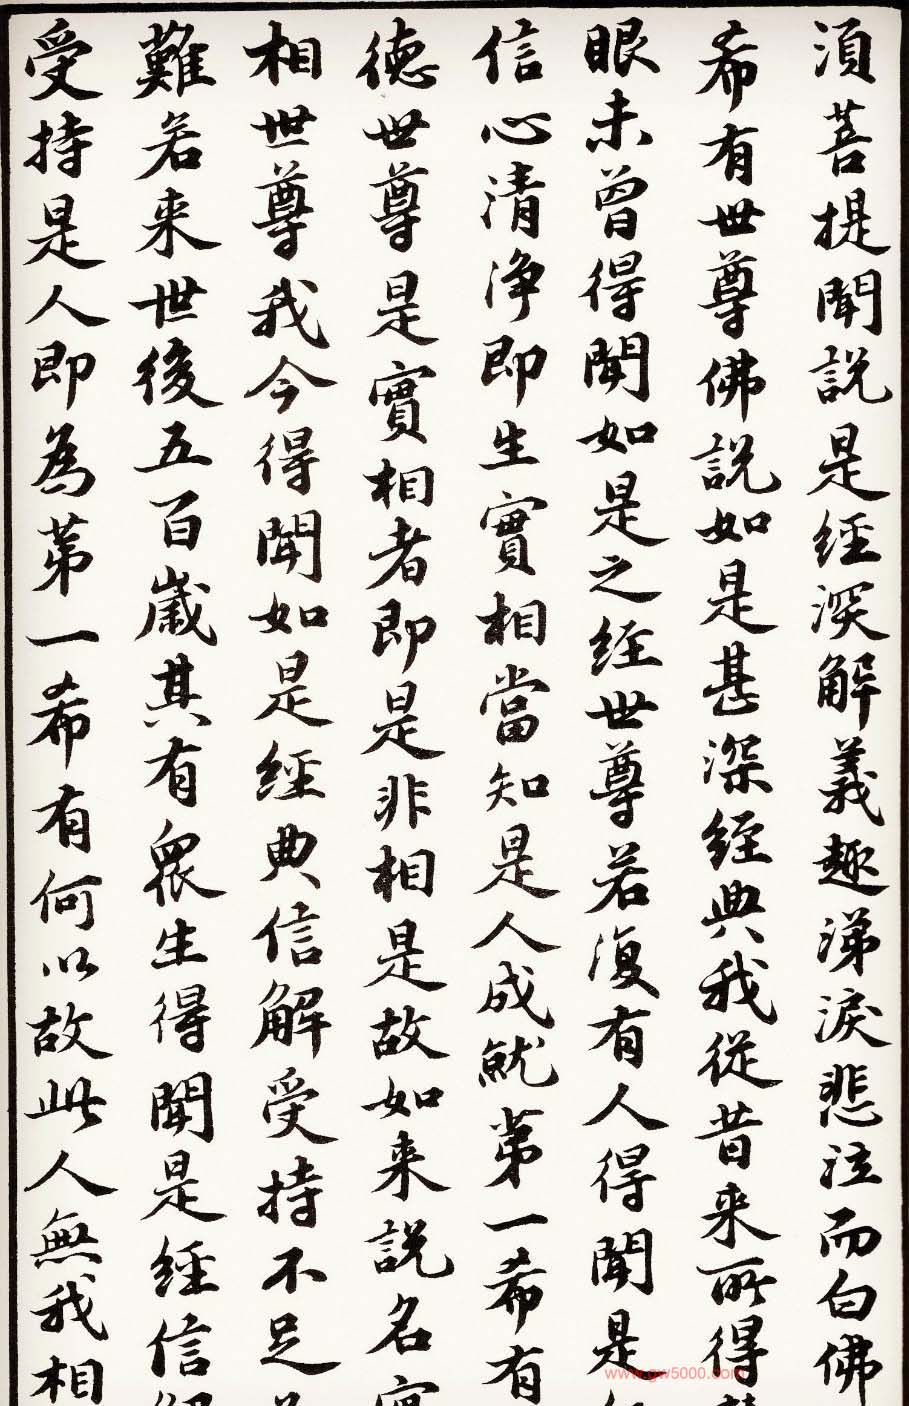 須菩提聞說是經深解義趣涕淚悲泣而白佛
希有世尊佛說如是甚深經典我從昔來所得
眼未曾得聞如是之經世尊若復有人得聞是
信心清淨即生實相當知是人成就第一希有
德世尊是實相者即是非相是故如來說名實
相世尊我今得聞如是經典信解受持不足
難若来世後五百歲其有眾生得聞是經信解
受持是人即為第一希有何以故此人無我相
www.gw5000.com